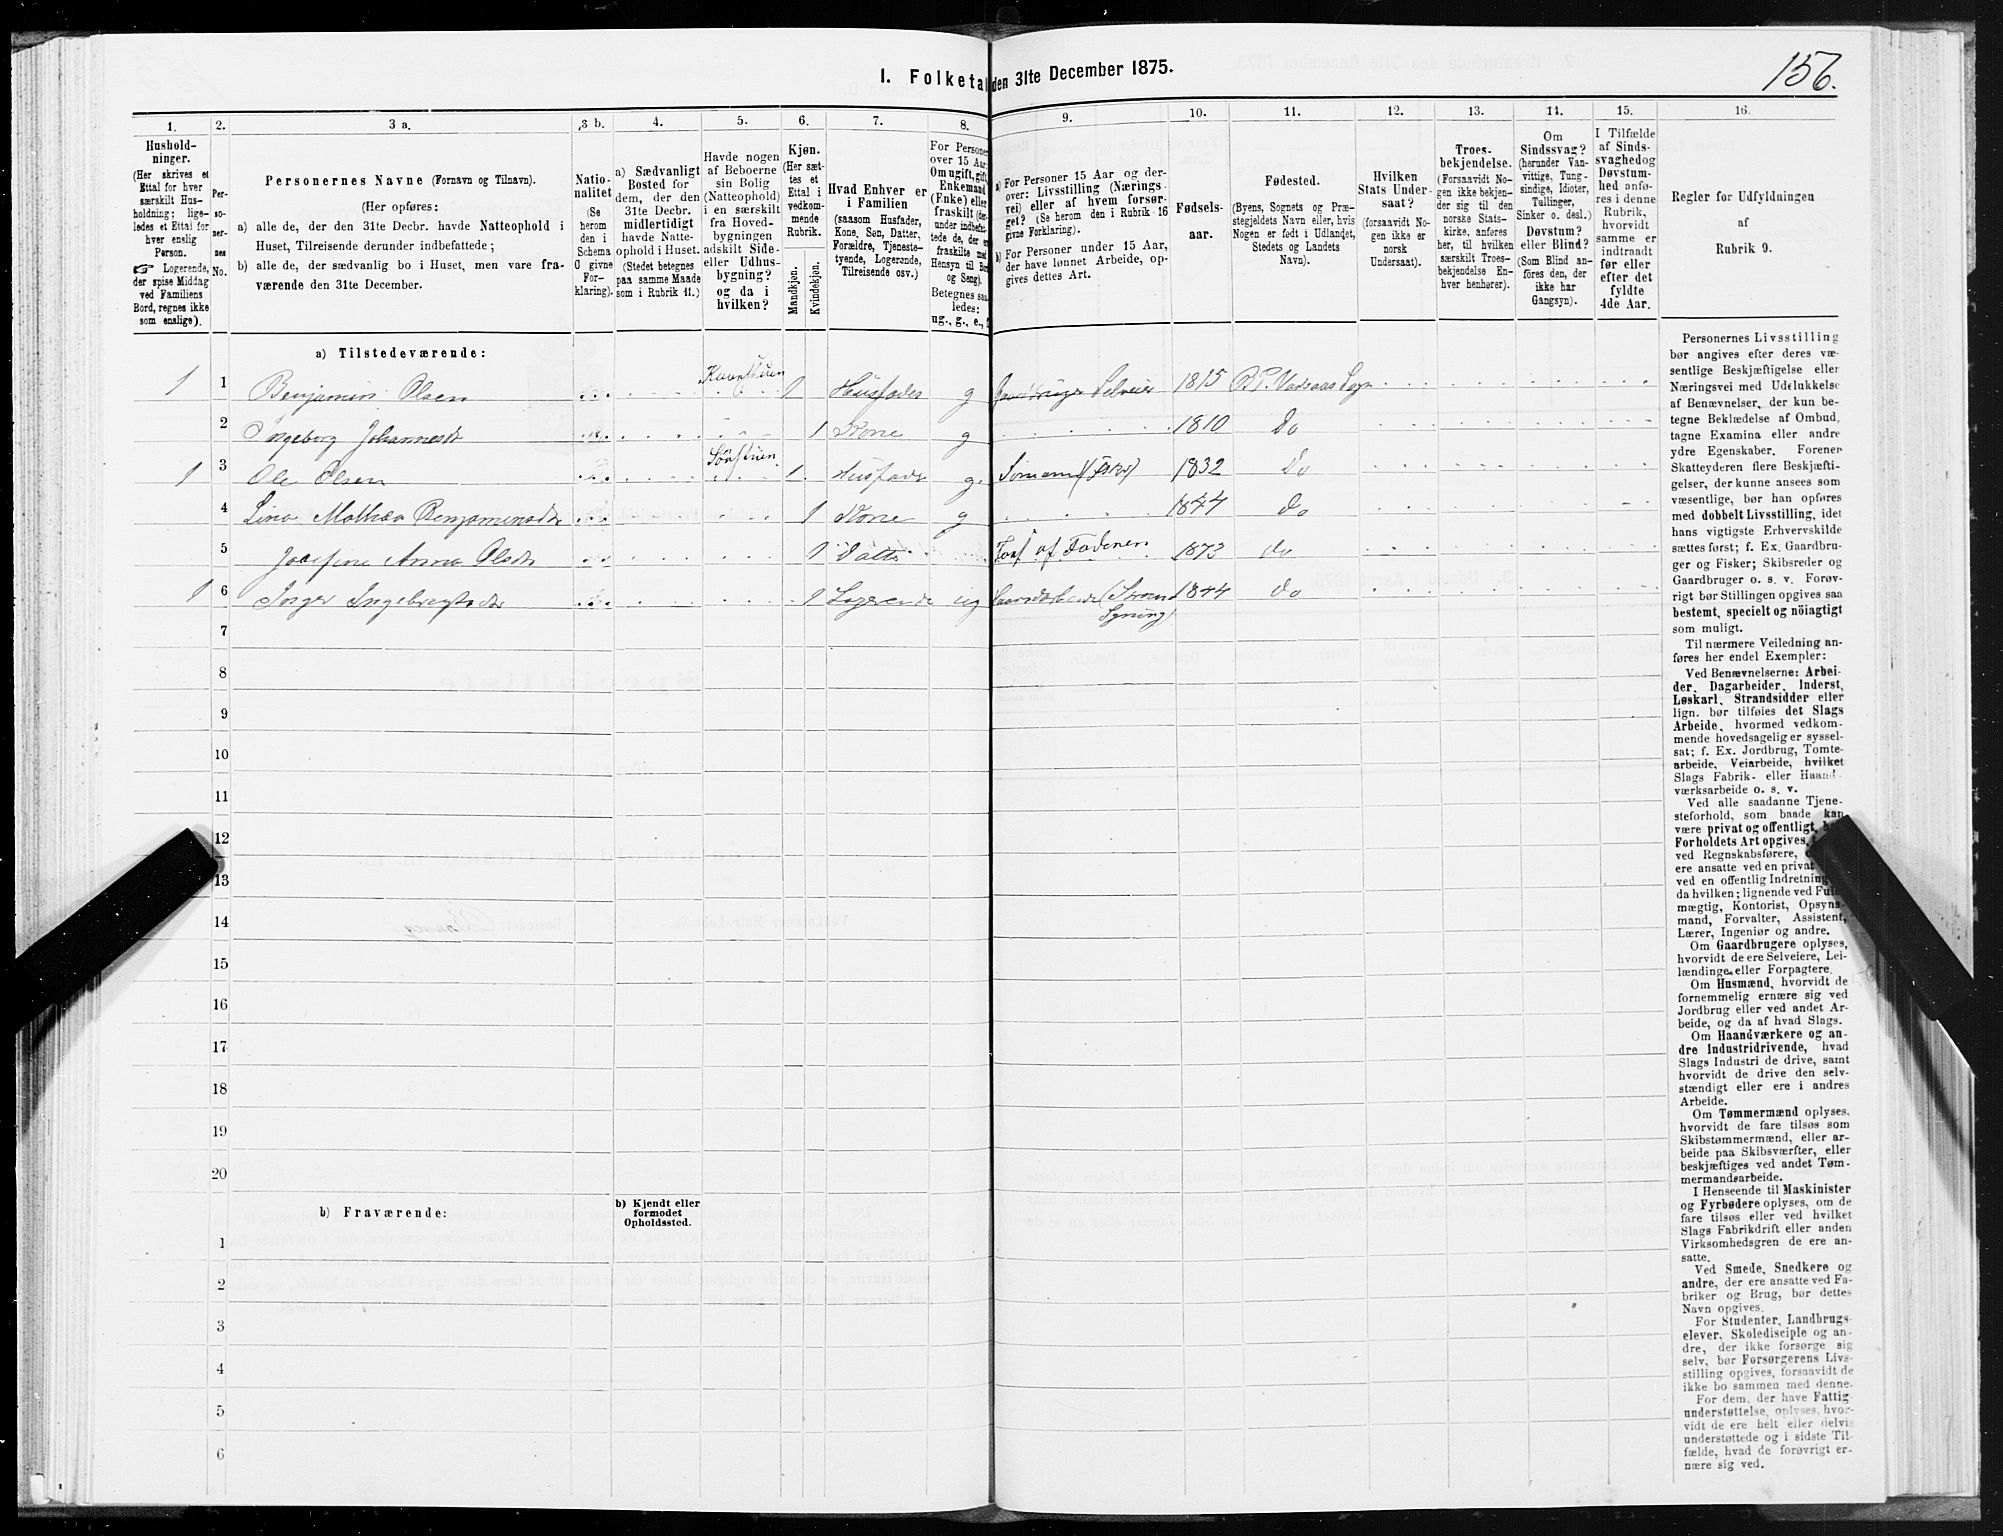 156.
I. Folketal den 31te December 1875.
1. 2. 3 a. 3 b. 4. 5. 6. 7. 8. 9. 10. 11. 12. 13. 14. 15. 16.
Hushold-
ninger.
(Her skrives et
Ettal for hver
særskilt Hus-
holdning; lige-
ledes et Ettal for
hver enslig
Person.
☞ Logerende,
der spise Middag
ved Familiens
Bord, regnes ikke
som enslige).
Per-
so-
ner-
nes
No.
Personernes Navne (Fornavn og Tilnavn).
(Her opføres:
a) alle de, der den 31te Decbr. havde Natteophold i
Huset, Tilreisende derunder indbefattede;
b) alle de, der sædvanlig bo i Huset, men vare fra-
værende den 31te December.
Natio-
nalitet
(Se
herom
den i
Schema
6 givne
For-
klaring).
a) Sædvanligt
Bosted for
dem, der den
31te Decbr.
midlertidigt
havde Natte-
ophold i Huset.
(Stedet betegnes
paa samme Maade
som i Rubrik 11.)
Havde nogen
af Beboerne
sin Bolig
(Natteophold)
i en særskilt
fra Hoved-
bygningen
adskilt Side-
eller Udhus-
bygning?
og da i
hvilken?
Kjøn.
(Her sæt-
tes et
Ettal i
vedkom-
mende
Rubrik.
Mandkjøn.
Kvindekjøn.
Hvad Enhver er
i Familien
(saasom Husfader,
Kone, Søn, Datter,
Forældre, Tjeneste-
tyende, Logerende,
Tilreisende osv.)
For Personer
over 15 Aar:
Om ugift, gift,
Enkemand
(Enke) eller
fraskilt (der-
under indbefat-
tede de, der er
fraskilte med
Hensyn til Bord
og Seng).
Betegnes saa-
ledes:
ug., g., e.,
a) For Personer 15 Aar og der-
over: Livsstilling (Nærings-
vei) eller af hvem forsør-
get? (Se herom den i Rubrik 16
givne Forklaring).
b) For Personer under 15 Aar,
der have lønnet Arbeide, op-
gives dettes Art.
Fødsels-
aar.
Fødested.
(Byens, Sognets og Præ-
stegjeldets Navn eller, hvis
Nogen er født i Udlandet,
Stedets og Landets
Navn).
Hvilken
Stats Under-
saat?
(forsaavidt No-
gen ikke er
norsk
Undersaat).
Troes-
bekjendelse.
(Forsaavidt No-
gen ikke bekjen-
der sig til den
norske Stats-
kirke, anføres
her, til hvilken
særskilt Troes-
bekjendelse En-
hver henhører).
Om
Sindssvag?
(herunder Van-
vittige, Tung-
sindige, Idioter,
Tullinger,
Sinker o. desl.)
Døvstum?
eller Blind?
(Som Blind an-
føres den, der
ikke har
Gangsyn).
I Tilfælde
af Sinds-
svaghedog
Døvstum-
hed anfø-
res i denne
Rubrik,
hvorvidt
samme er
indtraadt
før eller
efter det
fyldte
4de Aar.
Regler for Udfyldningen
af
Rubrik 9.
a) Tilstedeværende:
1 1 Benjamin Olsen 1 Husfader g Gaardbruger Selveier 1815
2 Ingeborg Johannesdt 1 Kone g 1810 Do
1 3 Ole Olsen 1 Husfader g 1832 Do
4 Lina Mathea Benjaminsdt 1 Kone g 1844 Do
5 Josefine Anna Olsdt 1 Datter Fors af Faderen 1873 do
1 6 Inger Ingebrigtsdt 1 Logerende ug 1844 do
Syning)
7
8
9
10
11
12
13
14
15
16
17
18
19
20
b) Fraværende:
b) Kjendt eller
formodet
Opholdssted.
1
2
3
4
5
6
Personernes Livsstilling
bør angives efter deres væ-
sentlige Beskjæftigelse eller
Næringsvei med Udelukkelse
af Benævnelser, der kun be-
tegne Beklædelse af Ombud,
tagne Examina eller andre
ydre Egenskaber. Forener
Skatteyderen flere Beskjæfti-
gelser, der kunne ansees som
væsentlige, bør han opføres
med dobbelt Livsstilling, idet
hans vigtigste Erhvervskilde
sættes først; f. Ex. Gaardbru-
ger og Fisker; Skibsreder og
Gaardbruger o. s. v. Forøv-
rigt bør Stillingen opgives saa
bestemt, specielt og nöiagtigt
som muligt.
Til nærmere Veiledning an-
føres her endel Exempler:
Ved Benævnelserne: Arbei-
der, Dagarbeider, Inderst,
Løskarl, Strandsidder eller
lign. bør tilføies det Slags
Arbeide, hvormed vedkom-
mende hovedsagelig er syssel-
sat; f. Ex. Jordbrug, Tomte-
arbeide, Veiarbeide, hvilket
Slags Fabrik- eller Haand-
værksarbeide o. s. v.
Ved alle saadanne Tjene-
steforhold, som baade kan
være privat og offentligt,
Forholdets Art opgives,
ved Regnskabsførere,
ere ansatte ved en privat
ved en offentlig Indretning
da hvilken; lignende ved Fuld-
mægtig, Kontorist, Opsyns-
mand, Forvalter, Assistent,
Lærer, Ingeniør og andre.
Om Gaardbrugere oplyses,
hvorvidt de ere Selveiere, Lei-
lændinge eller Forpagtere.
Om Husmænd, hvorvidt de
fornemmelig ernære sig ved
Jordbrug eller ved andet Ar-
beide, og da af hvad Slags.
Om Haandværkere og an-
dre Industridrivende, hvad
Slags Industri de drive, samt
hvorvidt de drive den selv-
stændigt eller ere i andres
Arbeide.
Om Tømmermænd oplyses,
hvorvidt de fare tilsøs som
Skibstømmermænd, eller ar-
beide paa Skibsværfter, eller
beskjæftiges ved andet Tøm-
mermandsarbeide.
I Henseende til Maskinister
og Fyrbødere oplyses, om de
fare tilsøs eller ved hvilket
Slags Fabrikdrift eller anden
Virksomhedsgren de ere an-
satte.
Ved Smede, Snedkere og
andre, der ere ansatte ved Fa-
briker og Brug, bør dettes
Navn opgives.
For Studenter, Landbrugs-
elever, Skoledisciple og an-
dre, der ikke forsørge sig
selv, bør Forsørgerens Livs-
stilling opgives, forsaavidt de
ikke bo sammen med denne.
For dem, der have Fattig-
understøttelse, oplyses, hvor-
vidt de ere helt eller delvis
understøttede og i sidste Til-
fælde, hvad de forøvrigt er-
nære sig ved.